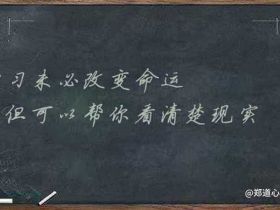 习未必改变命运
但可以帮你看清楚现实
@郑道心